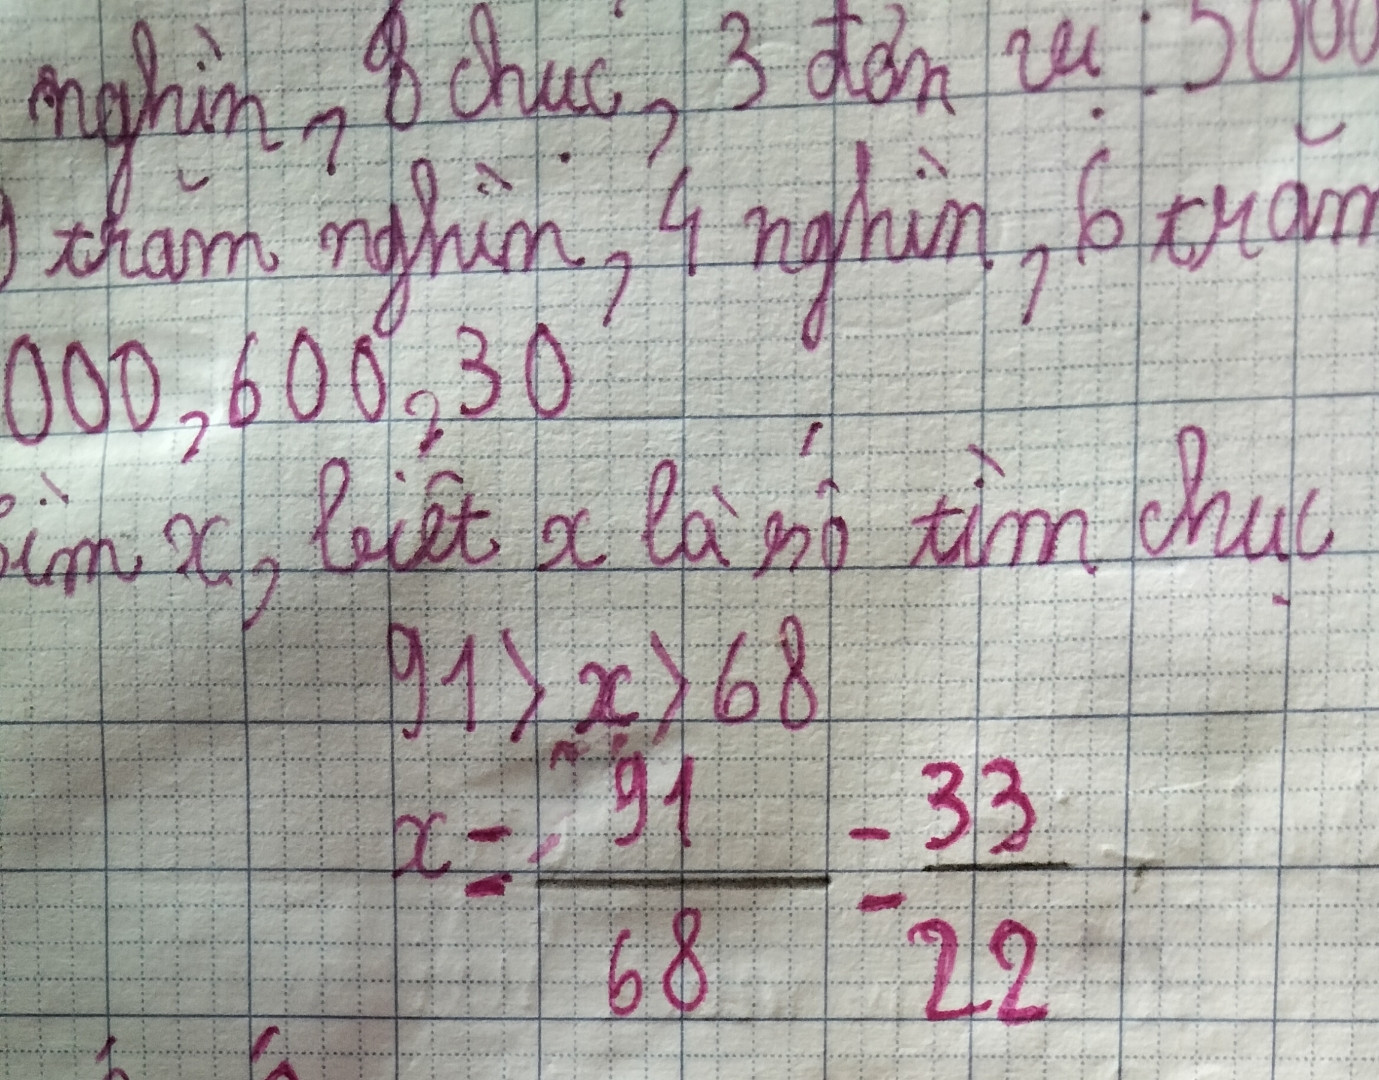 nghìn, 8 chục, 3 đơn vị : 5000
trăm nghìn, 4 nghìn, 6 trăm
000, 600, 30
Tìm x, biết x là số tìm chục
91 > x > 68
x = 91/68 = 33/22